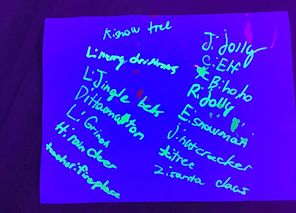 K: snow tree
L: merry christmas
L: Jingle bels
D: Hamilton
L: Grinch
H: rain deer
teacher: fireplace
J: jolly
C: Elf
B: ho ho
R: Jolly
E: snowman
J: nutcracker
tree
Z: santa claus